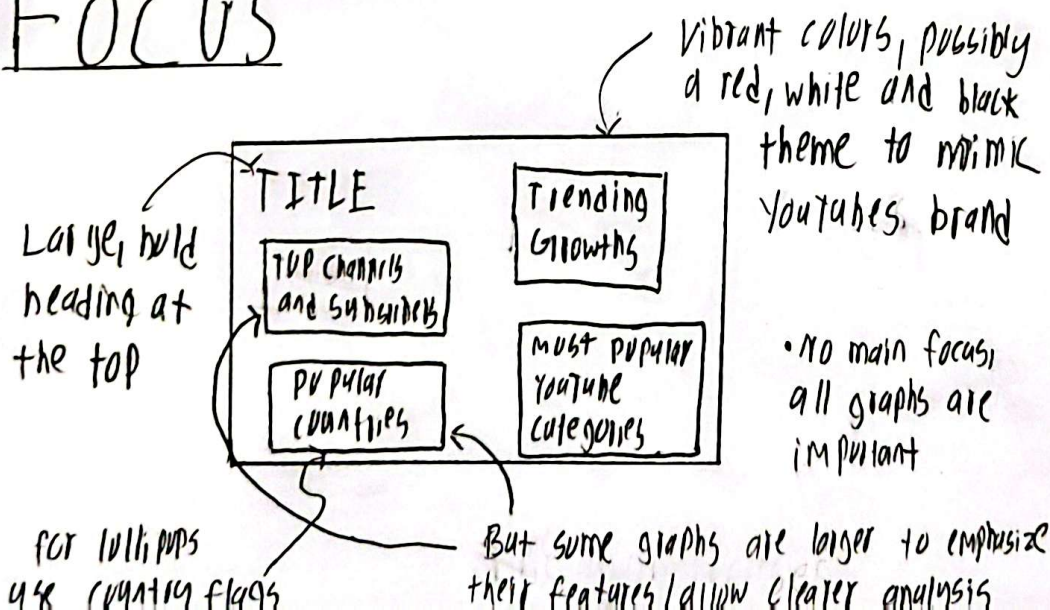 FOCUS
Vibrant colors, possibly
a red, white and black
theme to mimic
YouTubes. brand
Large, bold
heading at
the top
TITLE
Trending
Growths
Top channels
and subscribers
Popular
countries
most popular
YouTube
categories
• No main focus,
all graphs are
important
for lollipops
use country flags
But some graphs are larger to emphasize
their features/allow clearer analysis